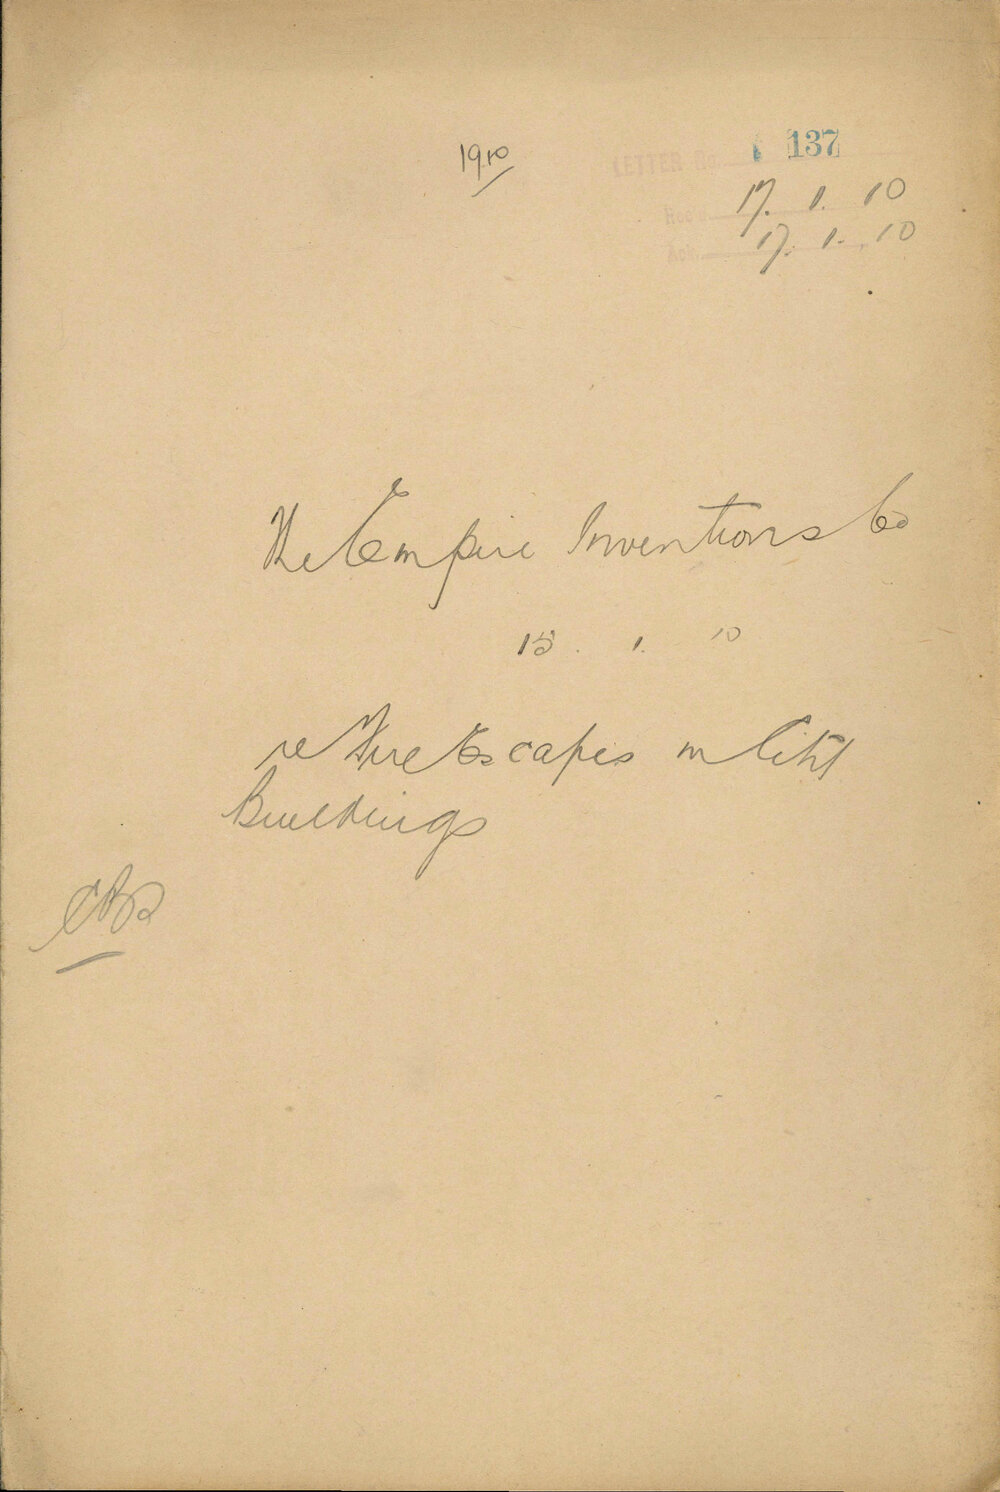 1910
LETTER No. 137
Rec'd 17. 1. 10
Ack. 17. 1. 10
The Empire Inventions Co
15. 1. 10
re Fire Escapes in City
Buildings